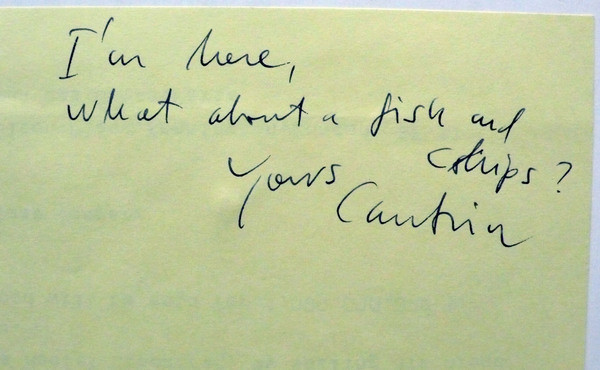 I'm here,
What about a fish and
chips?
Yours